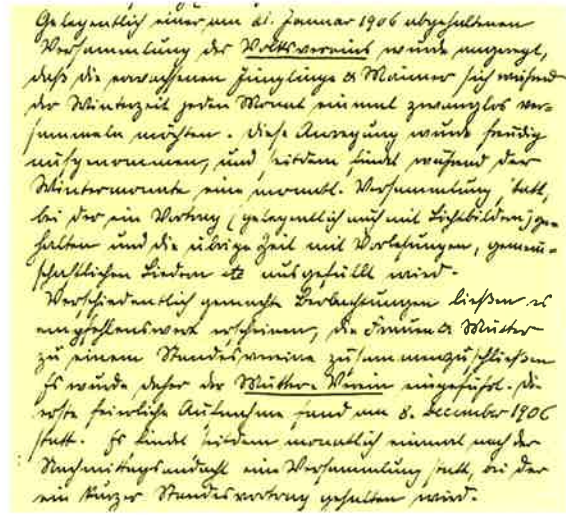 Gelegentlich einer am 21. Januar 1906 abgehaltenen
Versammlung des Volksvereins wurde angeregt,
daß die erwachsenen Jünglinge & Männer sich während
der Winterzeit jeden Monat einmal zwanglos ver-
sammeln möchten. Diese Anregung wurde freudig
aufgenommen, und seitdem findet während der
Wintermonate eine monatl. Versammlung statt,
bei der ein Vortrag (gelegentlich auch mit Lichtbildern) ge-
halten und die übrige Zeit mit Vorlesungen, gemein-
schaftlichen Liedern etc ausgefüllt wird.
Verschiedentlich gemachte Beobachtungen ließen es
empfehlenswert erscheinen, die Frauen & Mütter
zu einem Standesvereine zusammenzuschließen
Es wurde daher der Mütter-Verein eingeführt. Die
erste feierliche Aufnahme fand am 8. December 1906
statt. Es findet seitdem monatlich einmal nach der
Nachmittagsandacht eine Versammlung statt, bei der
ein kurzer Standesvortrag gehalten wird.